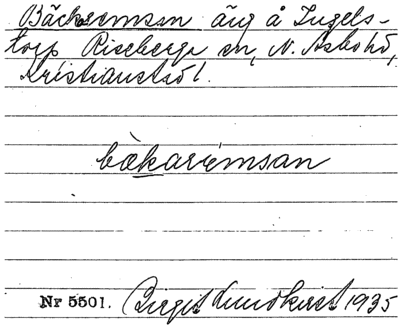 Bäckremsan äng å Ingels-
torp Riseberga sn, N. Åsbo hd,
Kristianst. l.
bækarémsan
Nr 5501. Birgit Lundkvist 1935